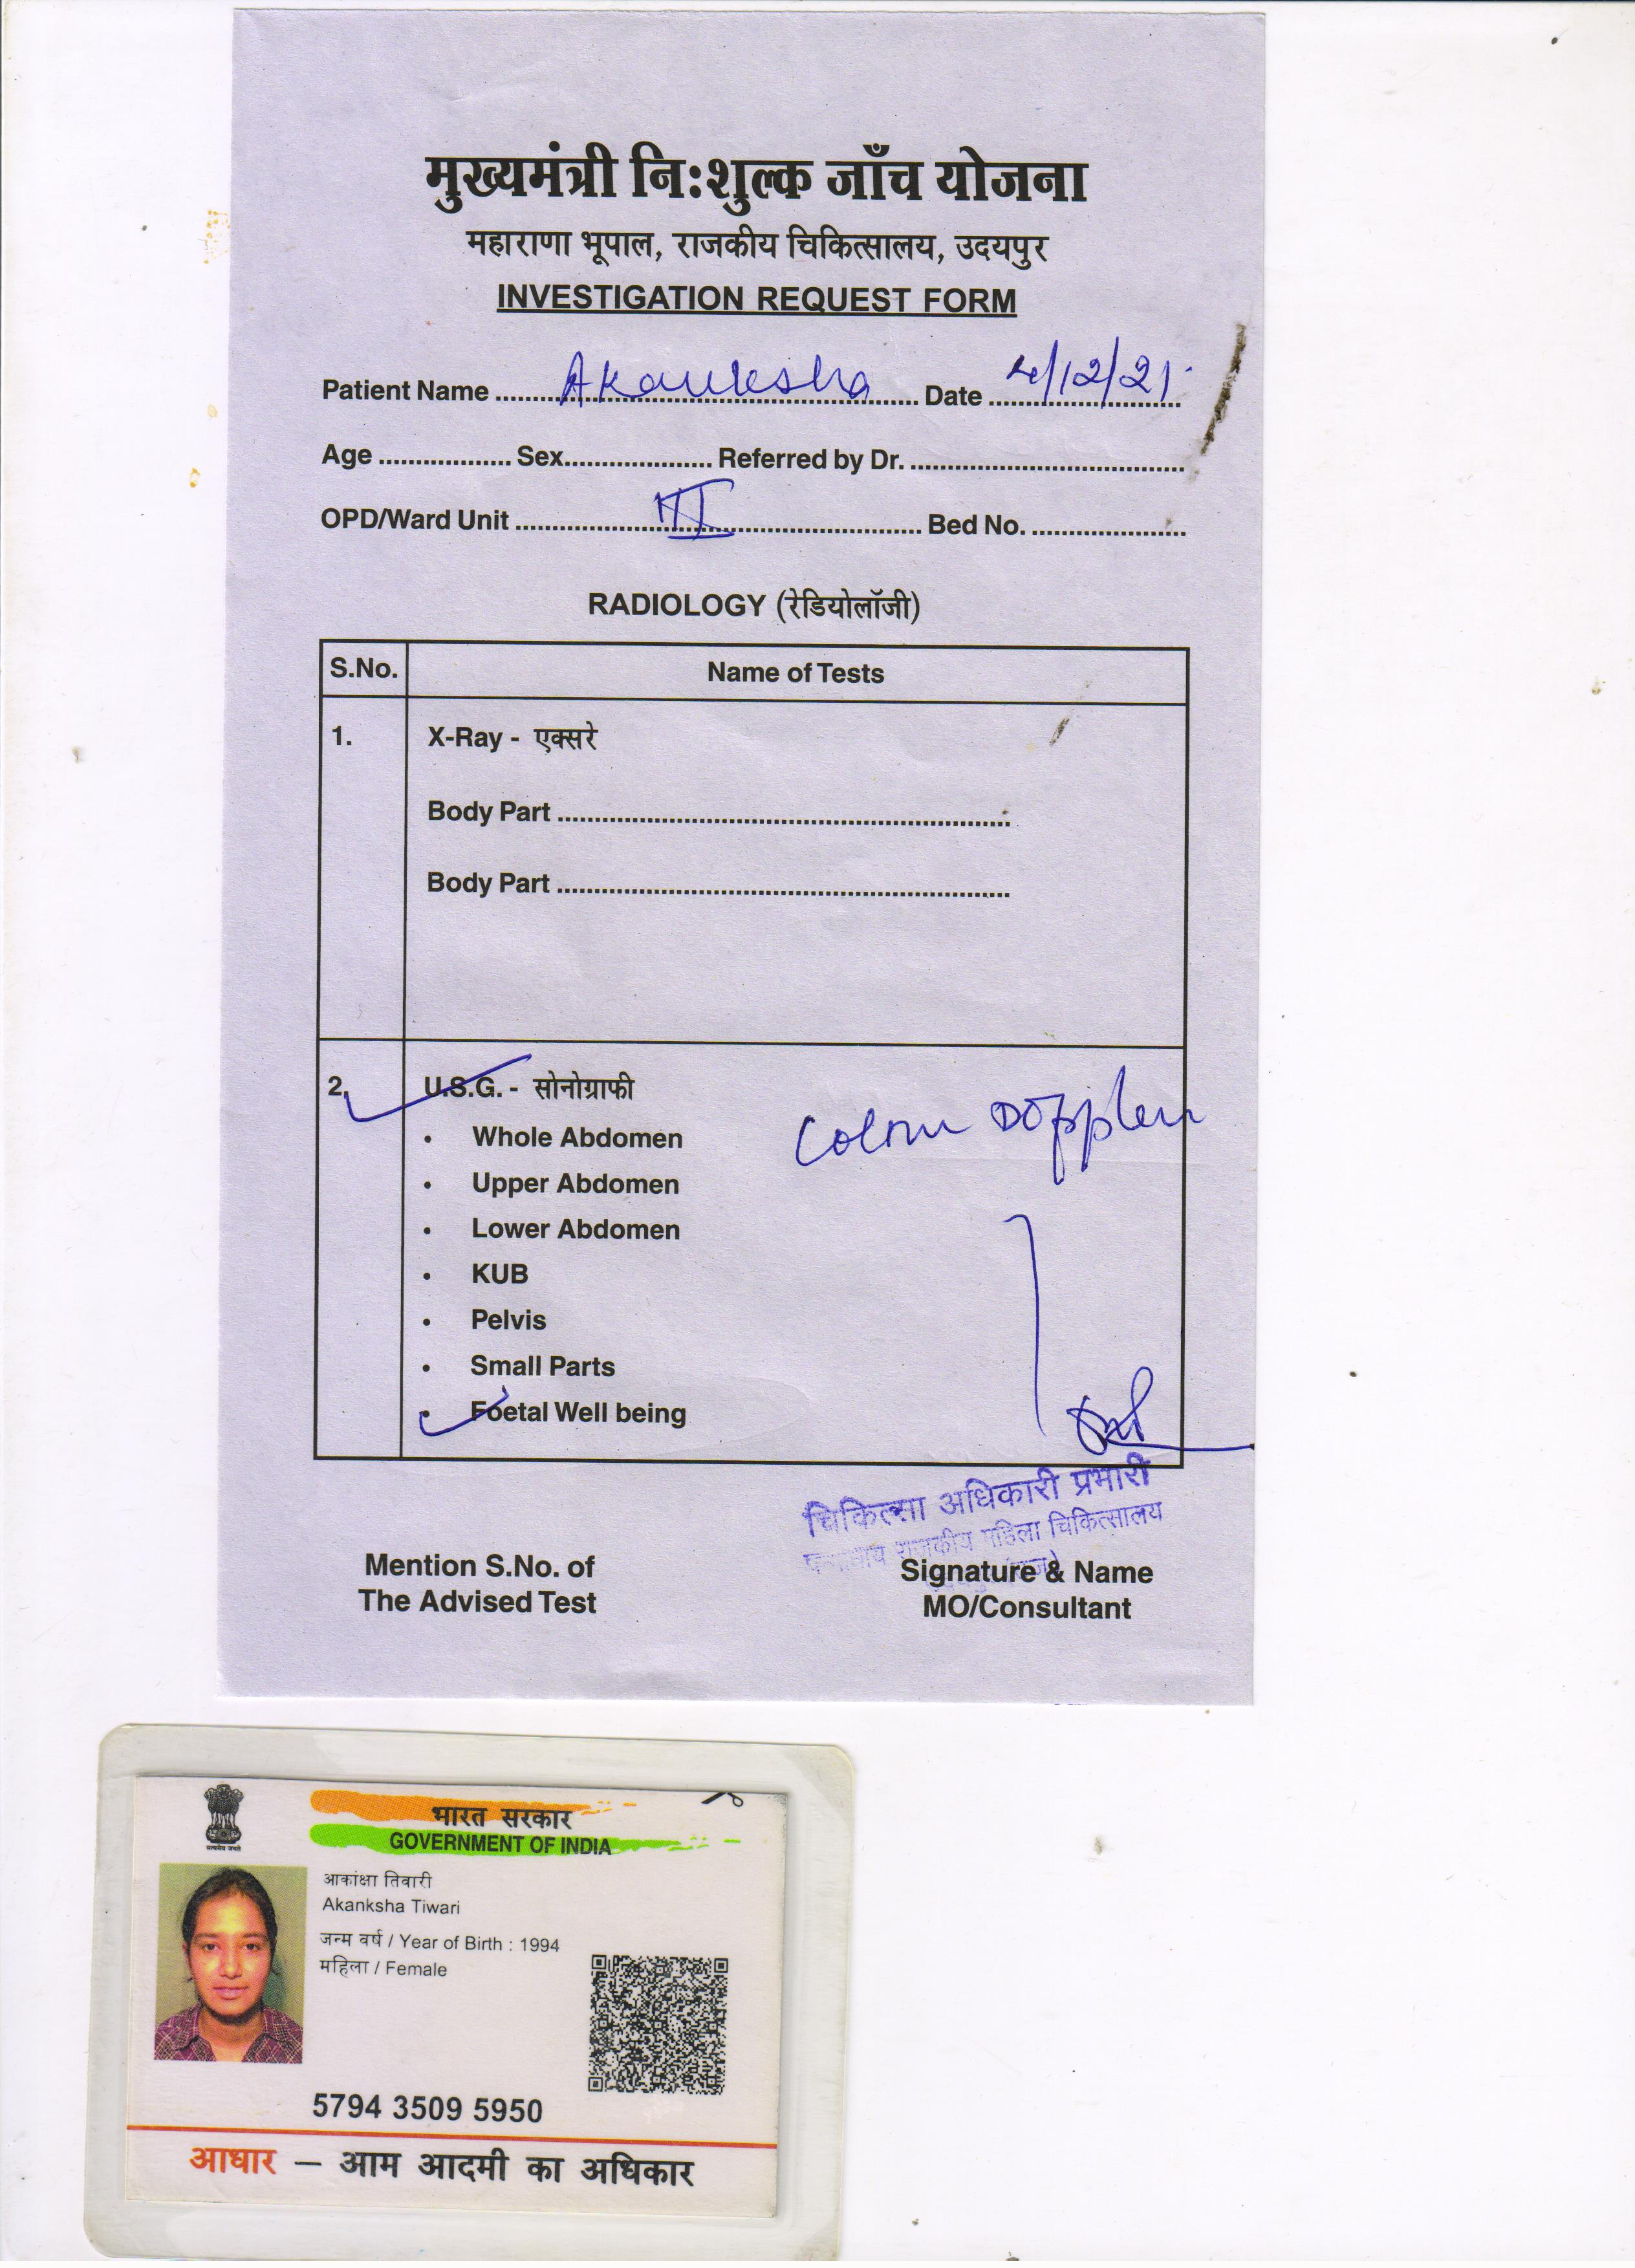 मुख्यमंत्री निःशुल्क जाँच योजना
महाराणा भूपाल, राजकीय चिकित्सालय, उदयपुर
INVESTIGATION REQUEST FORM
Patient Name ........ Akanksha ........ Date ........ 4/12/21
Age ........ Sex ........ Referred by Dr. ........
OPD/Ward Unit ........ III ........ Bed No. ........
RADIOLOGY (रेडियोलॉजी)
S.No. Name of Tests
1. X-Ray - एक्सरे
Body Part ........
Body Part ........
2. U.S.G. - सोनोग्राफी
Colour Doppler
• Whole Abdomen
• Upper Abdomen
• Lower Abdomen
• KUB
• Pelvis
• Small Parts
• Foetal Well being
चिकित्सा अधिकारी प्रभारी
राजकीय महिला चिकित्सालय
Mention S.No. of
The Advised Test
Signature & Name
MO/Consultant
सत्यमेव जयते
भारत सरकार
GOVERNMENT OF INDIA
आकांक्षा तिवारी
Akanksha Tiwari
जन्म वर्ष / Year of Birth : 1994
महिला / Female
5794 3509 5950
आधार – आम आदमी का अधिकार